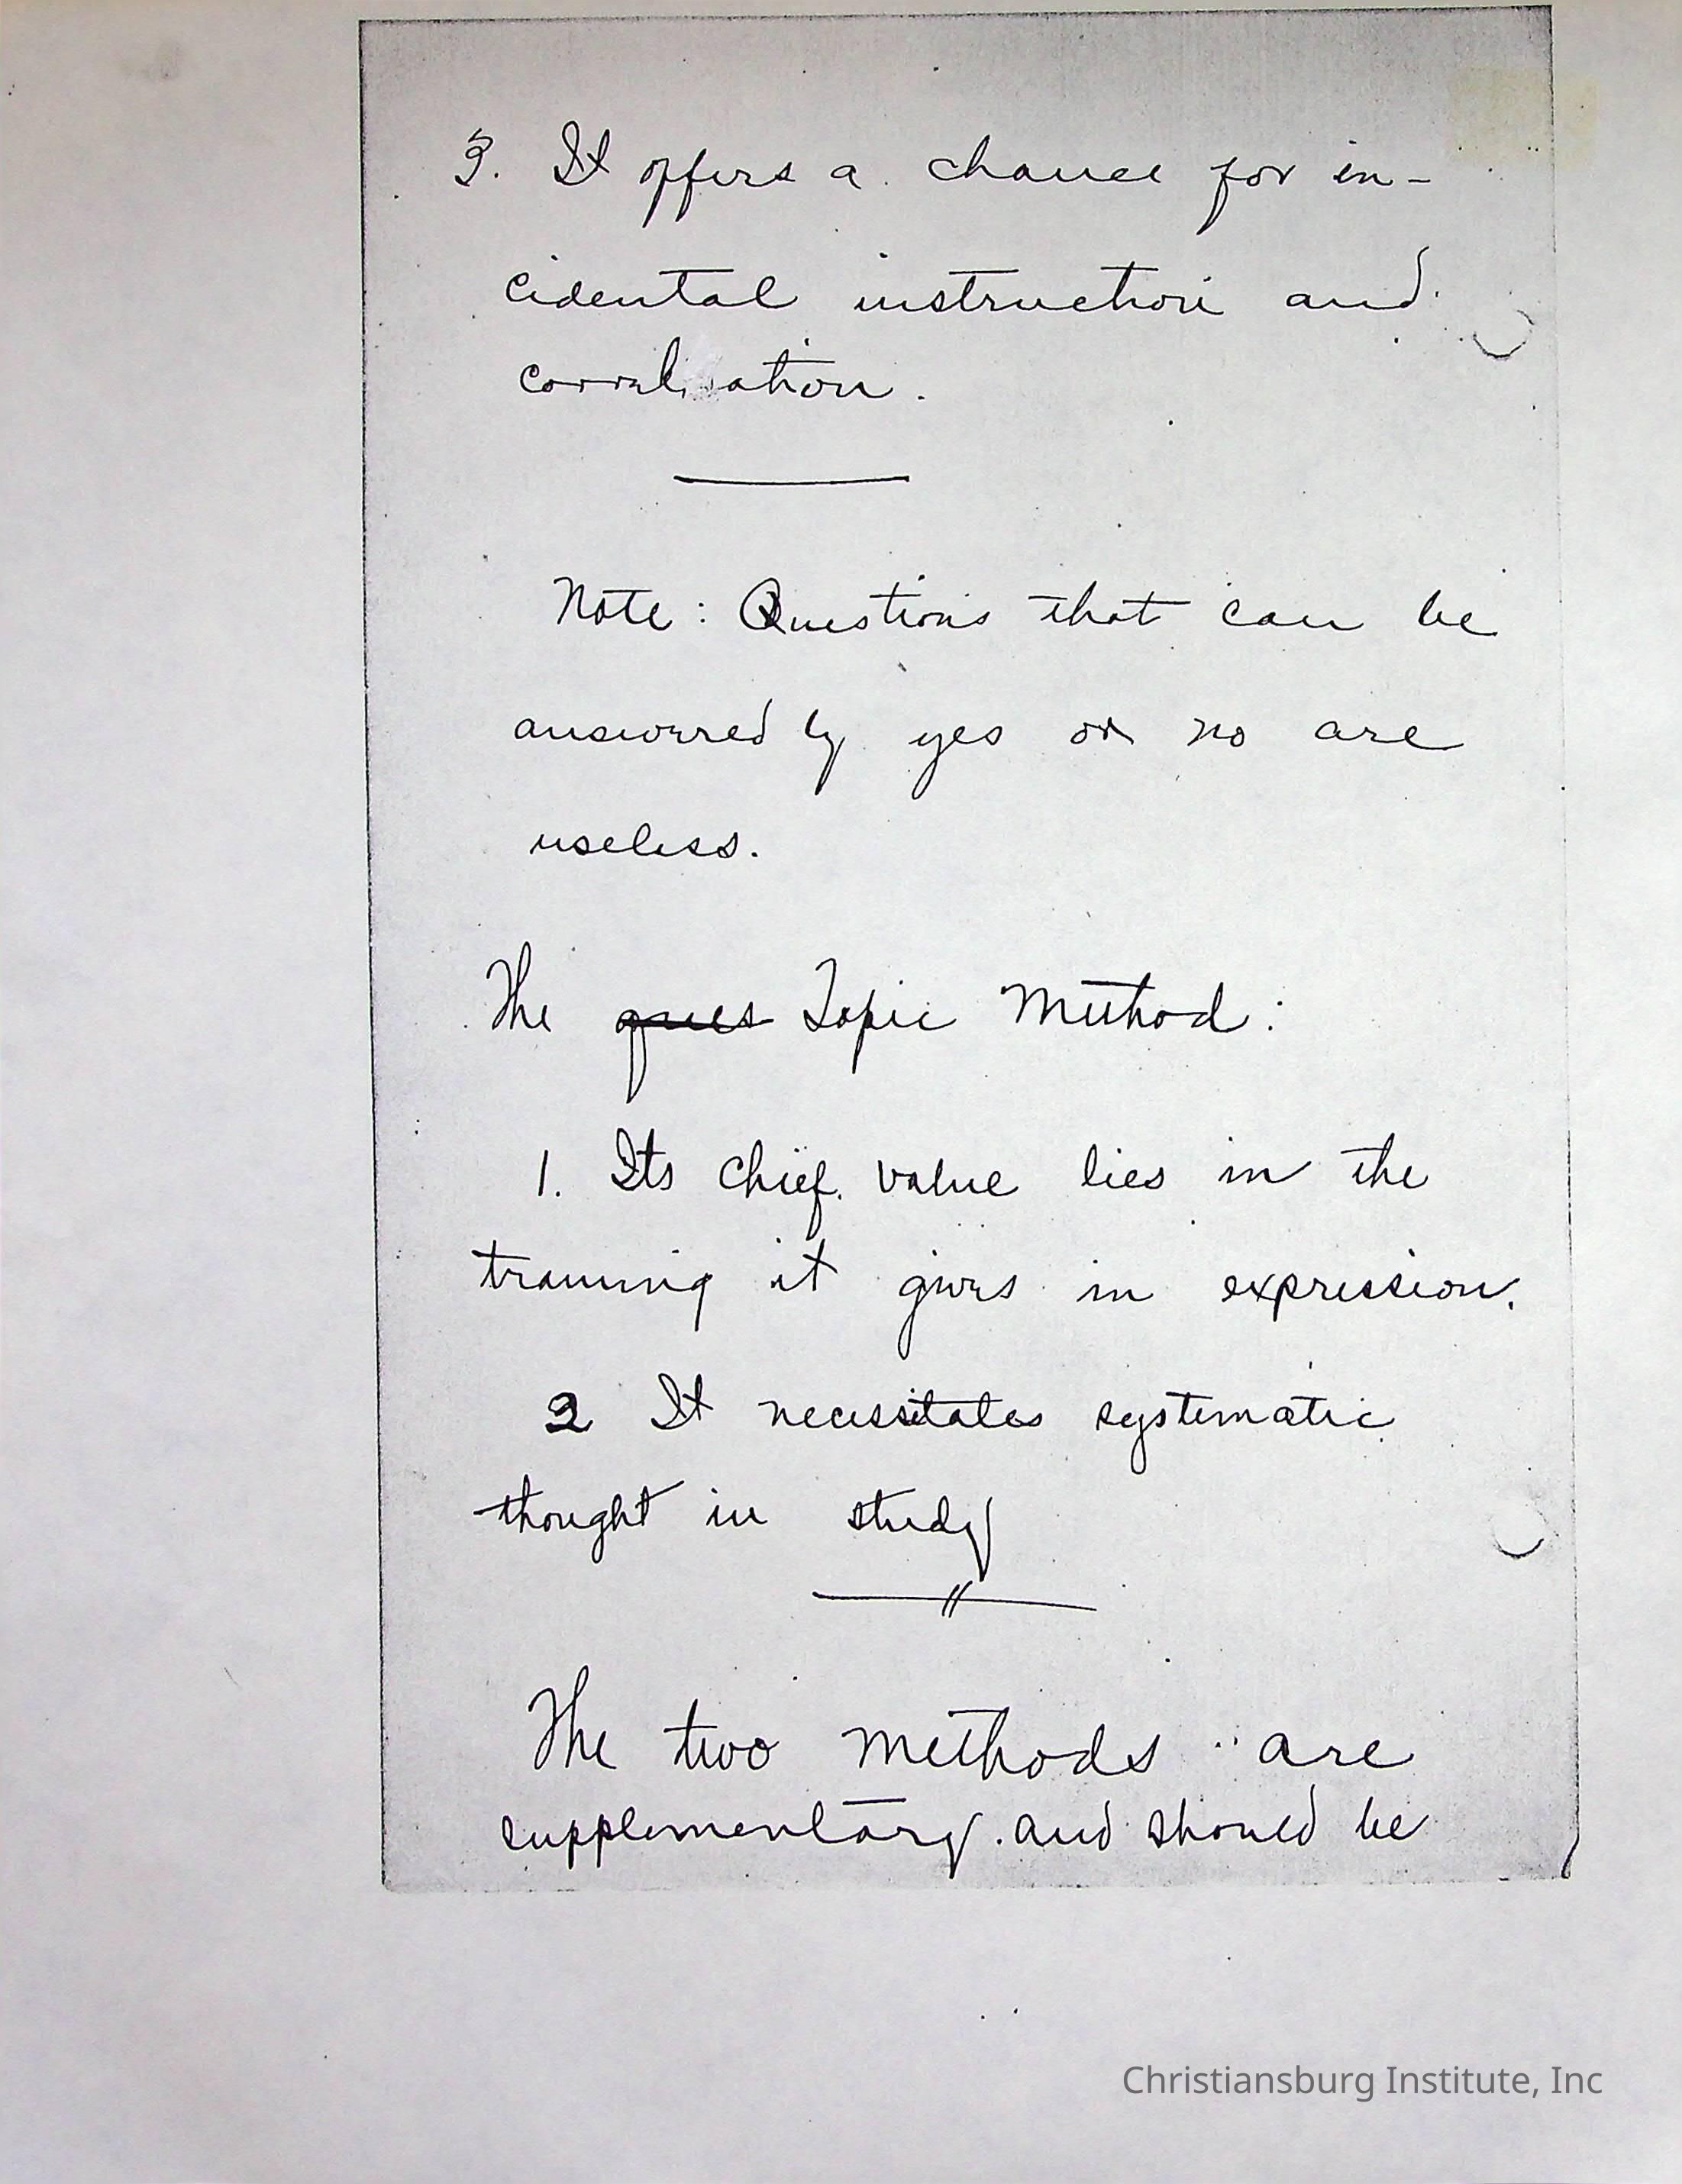 3. It offers a chance for in-
cidental instruction and
Note: Questions that can be
answered by yes or no are
useless.
The ques Topic Method:
1. Its chief value lies in the
training it gives in expression.
2 It necessitates systematic
thought in study
The two methods are
supplementary and should be
Christiansburg Institute, Inc